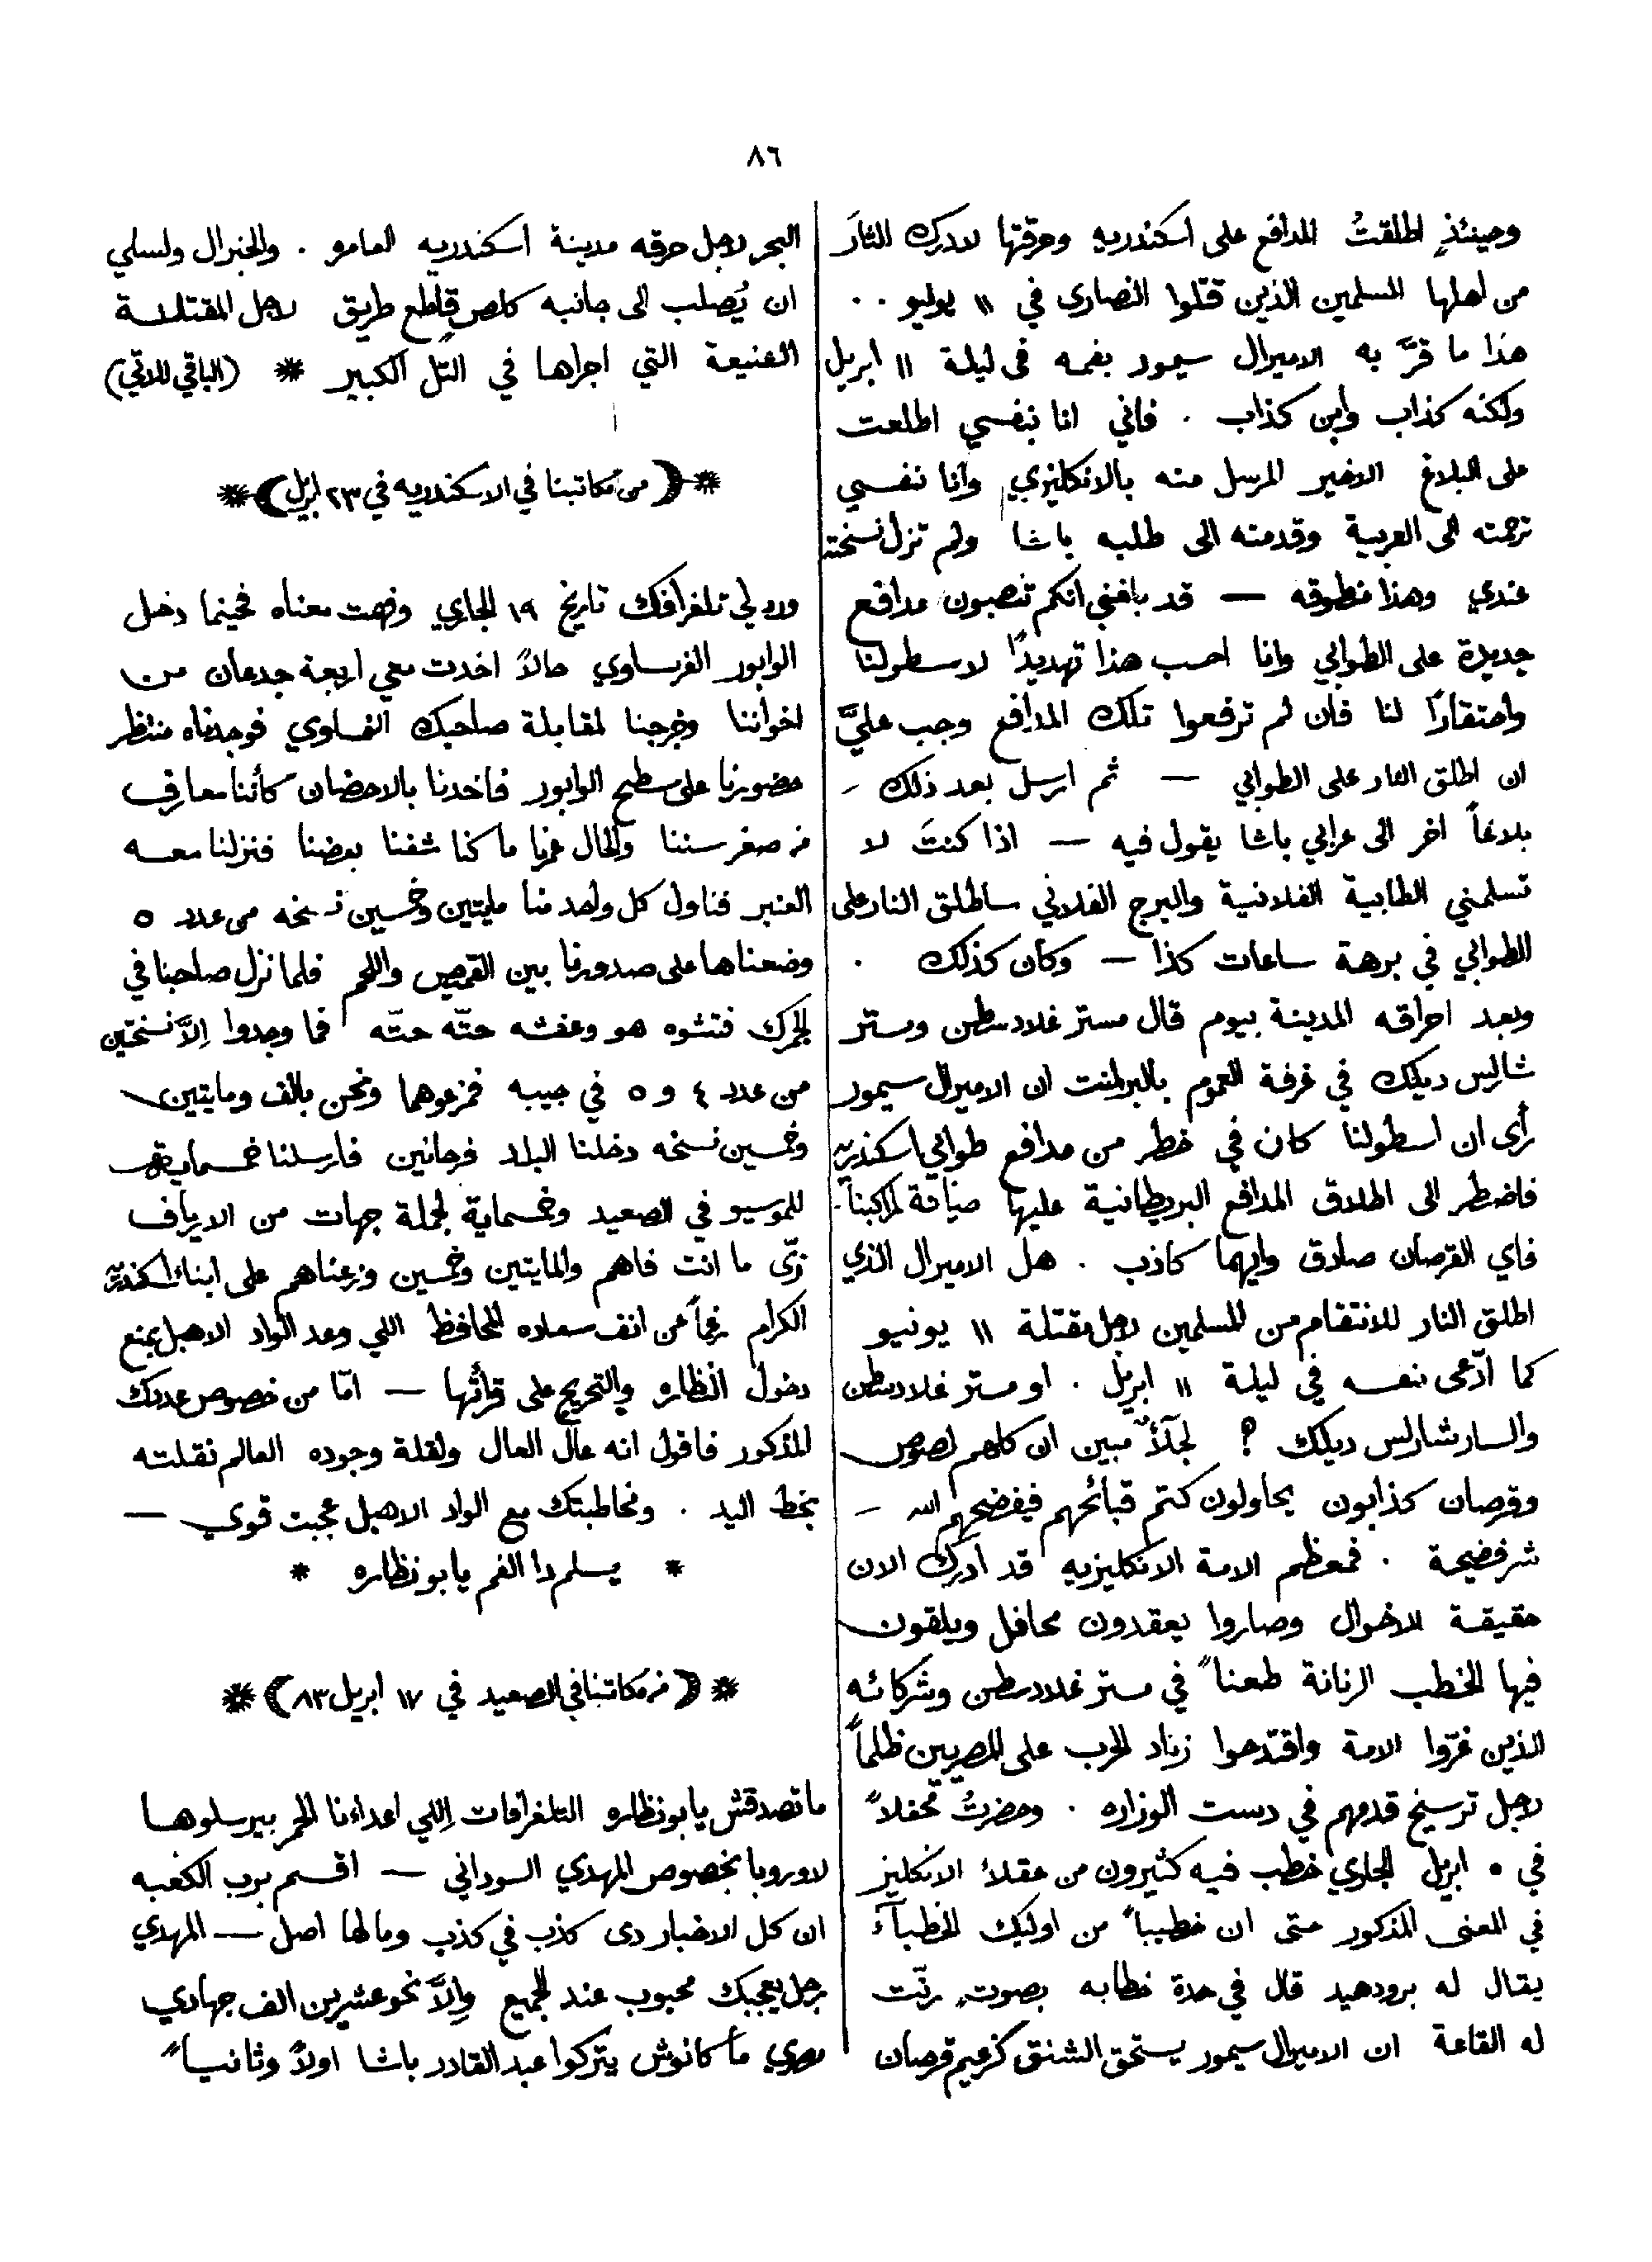 ٨٦
وحينئذٍ اطلقتُ المدافع على اسكندريه وحرقتها لادرك الثارَ
من اهلها المسلمين الذين قتلوا النصارى في ١١ يوليو ..
هذا ما قرَّ به الاميرال سيمور بفمه فى ليلة ١١ ابريل
ولكنه كذاب وابن كذاب . فاني انا بنفسي اطلعت
على البلاغ الاخير المرسل منه بالانكليزي وانا نفسي
ترجمته الى العربية وقدمته الى طلبه باشا ولم تزل نسخته
عندي وهذا منطوقه — قد بلغني انكم تنصبون مدافع
جديدة على الطوابي وانا احسب هذا تهديدًا لاسطولنا
واحتقارًا لنا فان لم ترفعوا تلك المدافع وجب عليَّ
ان اطلق النار على الطوابي — ثم ارسل بعد ذلك -
بلاغاً اخر الى عرابي باشا يقول فيه — اذا كنتَ لا
تسلمني الطابية الفلانية والبرج الفلاني ساطلق النار على
الطوابي في برهة ساعات كذا — وكان كذلك .
وبعد احراقه المدينة بيوم قال مستر غلادسطن ومستر
شارلس ديلك في غرفة العموم بالبرلمنت ان الاميرال سيمور
رأى ان اسطولنا كان في خطر من مدافع طوابي اسكندريه
فاضطر الى اطلاق المدافع البريطانية عليها صيانة لمراكبنا.
فاي القرصان صادق وايهما كاذب . هل الاميرال الذي
اطلق النار للانتقام من المسلمين لاجل مقتلة ١١ يونيو
كما ادّعى نفسه في ليلة ١١ ابريل . او مستر غلادسطن
والسار شارلس ديلك ؟ مبين ان كلهم لصوص
وقرصان كذابون يحاولون كتم قبائحهم فيفضحهم الله -
شر فضيحة . فمعظم الامة الانكليزيه قد ادرك الان
حقيقة الاحوال وصاروا يعقدون محافل ويلقون
فيها الخطب الرنانة طعناً في مستر غلادسطن وشركائه
الذين غرّوا الامة واقتدحوا زناد الحرب على المصريين ظلماً
لاجل ترسيخ قدمهم في دست الوزاره . وحضرتُ محفلاً
في ٥ ابريل الجاري خطب فيه كثيرون من عقلاء الانكليز
في المعنى المذكور حتى ان خطيباً من اوليك الخطباء
يقال له برودهيد قال في حدة خطابه بصوتٍ رنّت
له القاعة ان الاميرال سيمور يستحق الشنق كزعيم قرصان
البحر لاجل حرقه مدينة اسكندريه العامره . والجنرال ولسلي
ان يُصلب الى جانبه كلصٍ قاطع طريق لاجل المقتلة
الفنيعة التي اجراها في التل الكبير * (الباقي للاتي)
*(من مكاتبنا في الاسكندريه في ٢٣ ابريل)*
ورد لي تلغرافك تاريخ ١٩ الجاري وفهمت معناه فحينما دخل
الوابور الفرنساوي حالاً اخدت معي اربعة جدعان من
اخواننا وخرجنا لمقابلة صاحبك النمساوي فوجدناه منتظر
حضورنا على سطح الوابور فاخدنا بالاحضان كأننا معارف
من صغر سننا والحال عمرنا ما كنا شفنا بعضنا فنزلنا معه
العنبر فناول كل واحد منا مايتين وخمسين نسخه من عدد ٥
وضعناها على صدورنا بين القميص واللحم فلما نزل صاحبنا في
الجمرك فتشوه هو وعفشه حتّه حتّه فما وجدوا الاَّ نسختين
من عدد ٤ و ٥ في جيبه فمزعوهما ونحن بالف ومايتين
وخمسين نسخه دخلنا البلد فرحانين فارسلنا خمسماية
للموسيو في الصعيد وخمسماية لجملة جهات من الارياف
زيّ ما انت فاهم والمايتين وخمسين وزعناهم على ابناء اسكندريه
الكرام رغماً عن انف سعاده المحافظ اللي وعد الواد الاهبل بمنع
دخول النظاره والتحريج على قرائتها — امّا من خصوص عددك
المذكور فاقول انه عال العال ولقلة وجوده العالم نقلته
بخط اليد . ومخاطبتك مع الواد الاهبل عجبت قوي —
* يسلم دا الفم يا بو نظاره *
*(من مكاتبنا في الصعيد في ١٧ ابريل ٨٣)*
ما تصدقش يا بو نظاره التلغرافات اللي اعداءنا الحمر بيرسلوها
لاوروبا بخصوص المهدي السوداني — اقسم برب الكعبه
ان كل الاخبار دى كذب في كذب وما لها اصل — المهدي
رجل يعجبك محبوب عند الجميع والاَّ نحو عشرين الف جهادي
مصري ما كانوش يتركوا عبد القادر باشا اولاً وثانياً